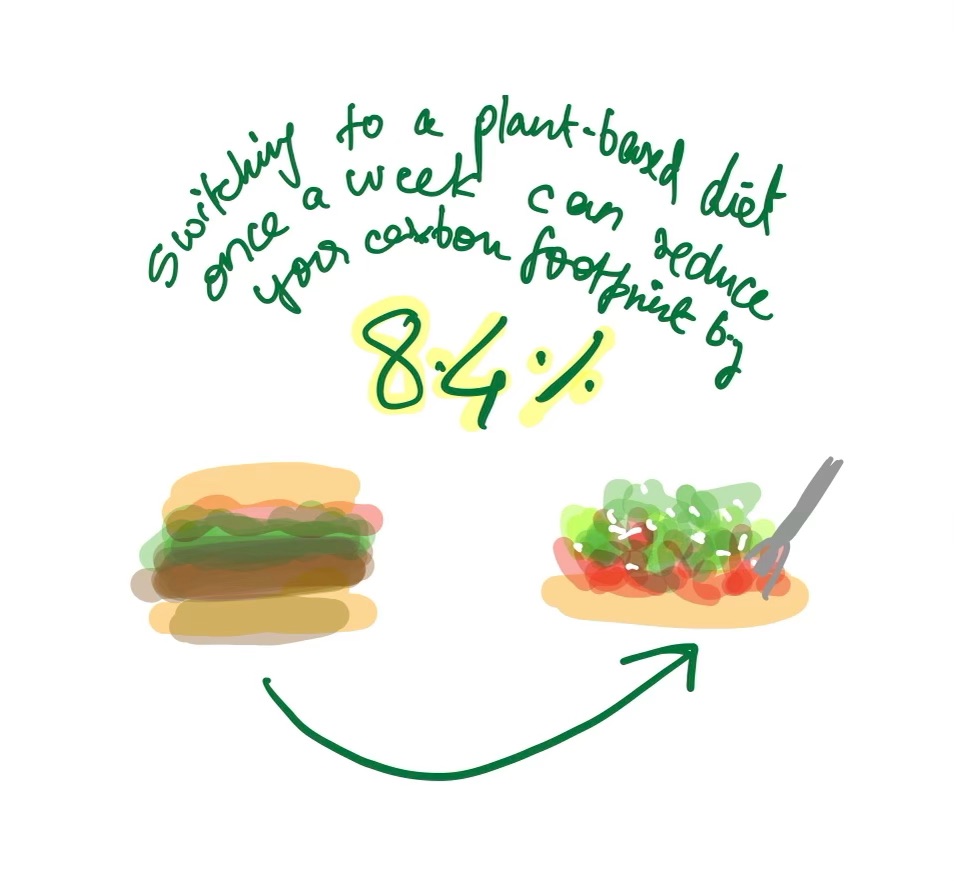 switching to a plant-based diet
once a week can reduce
your carbon footprint by
8.4%